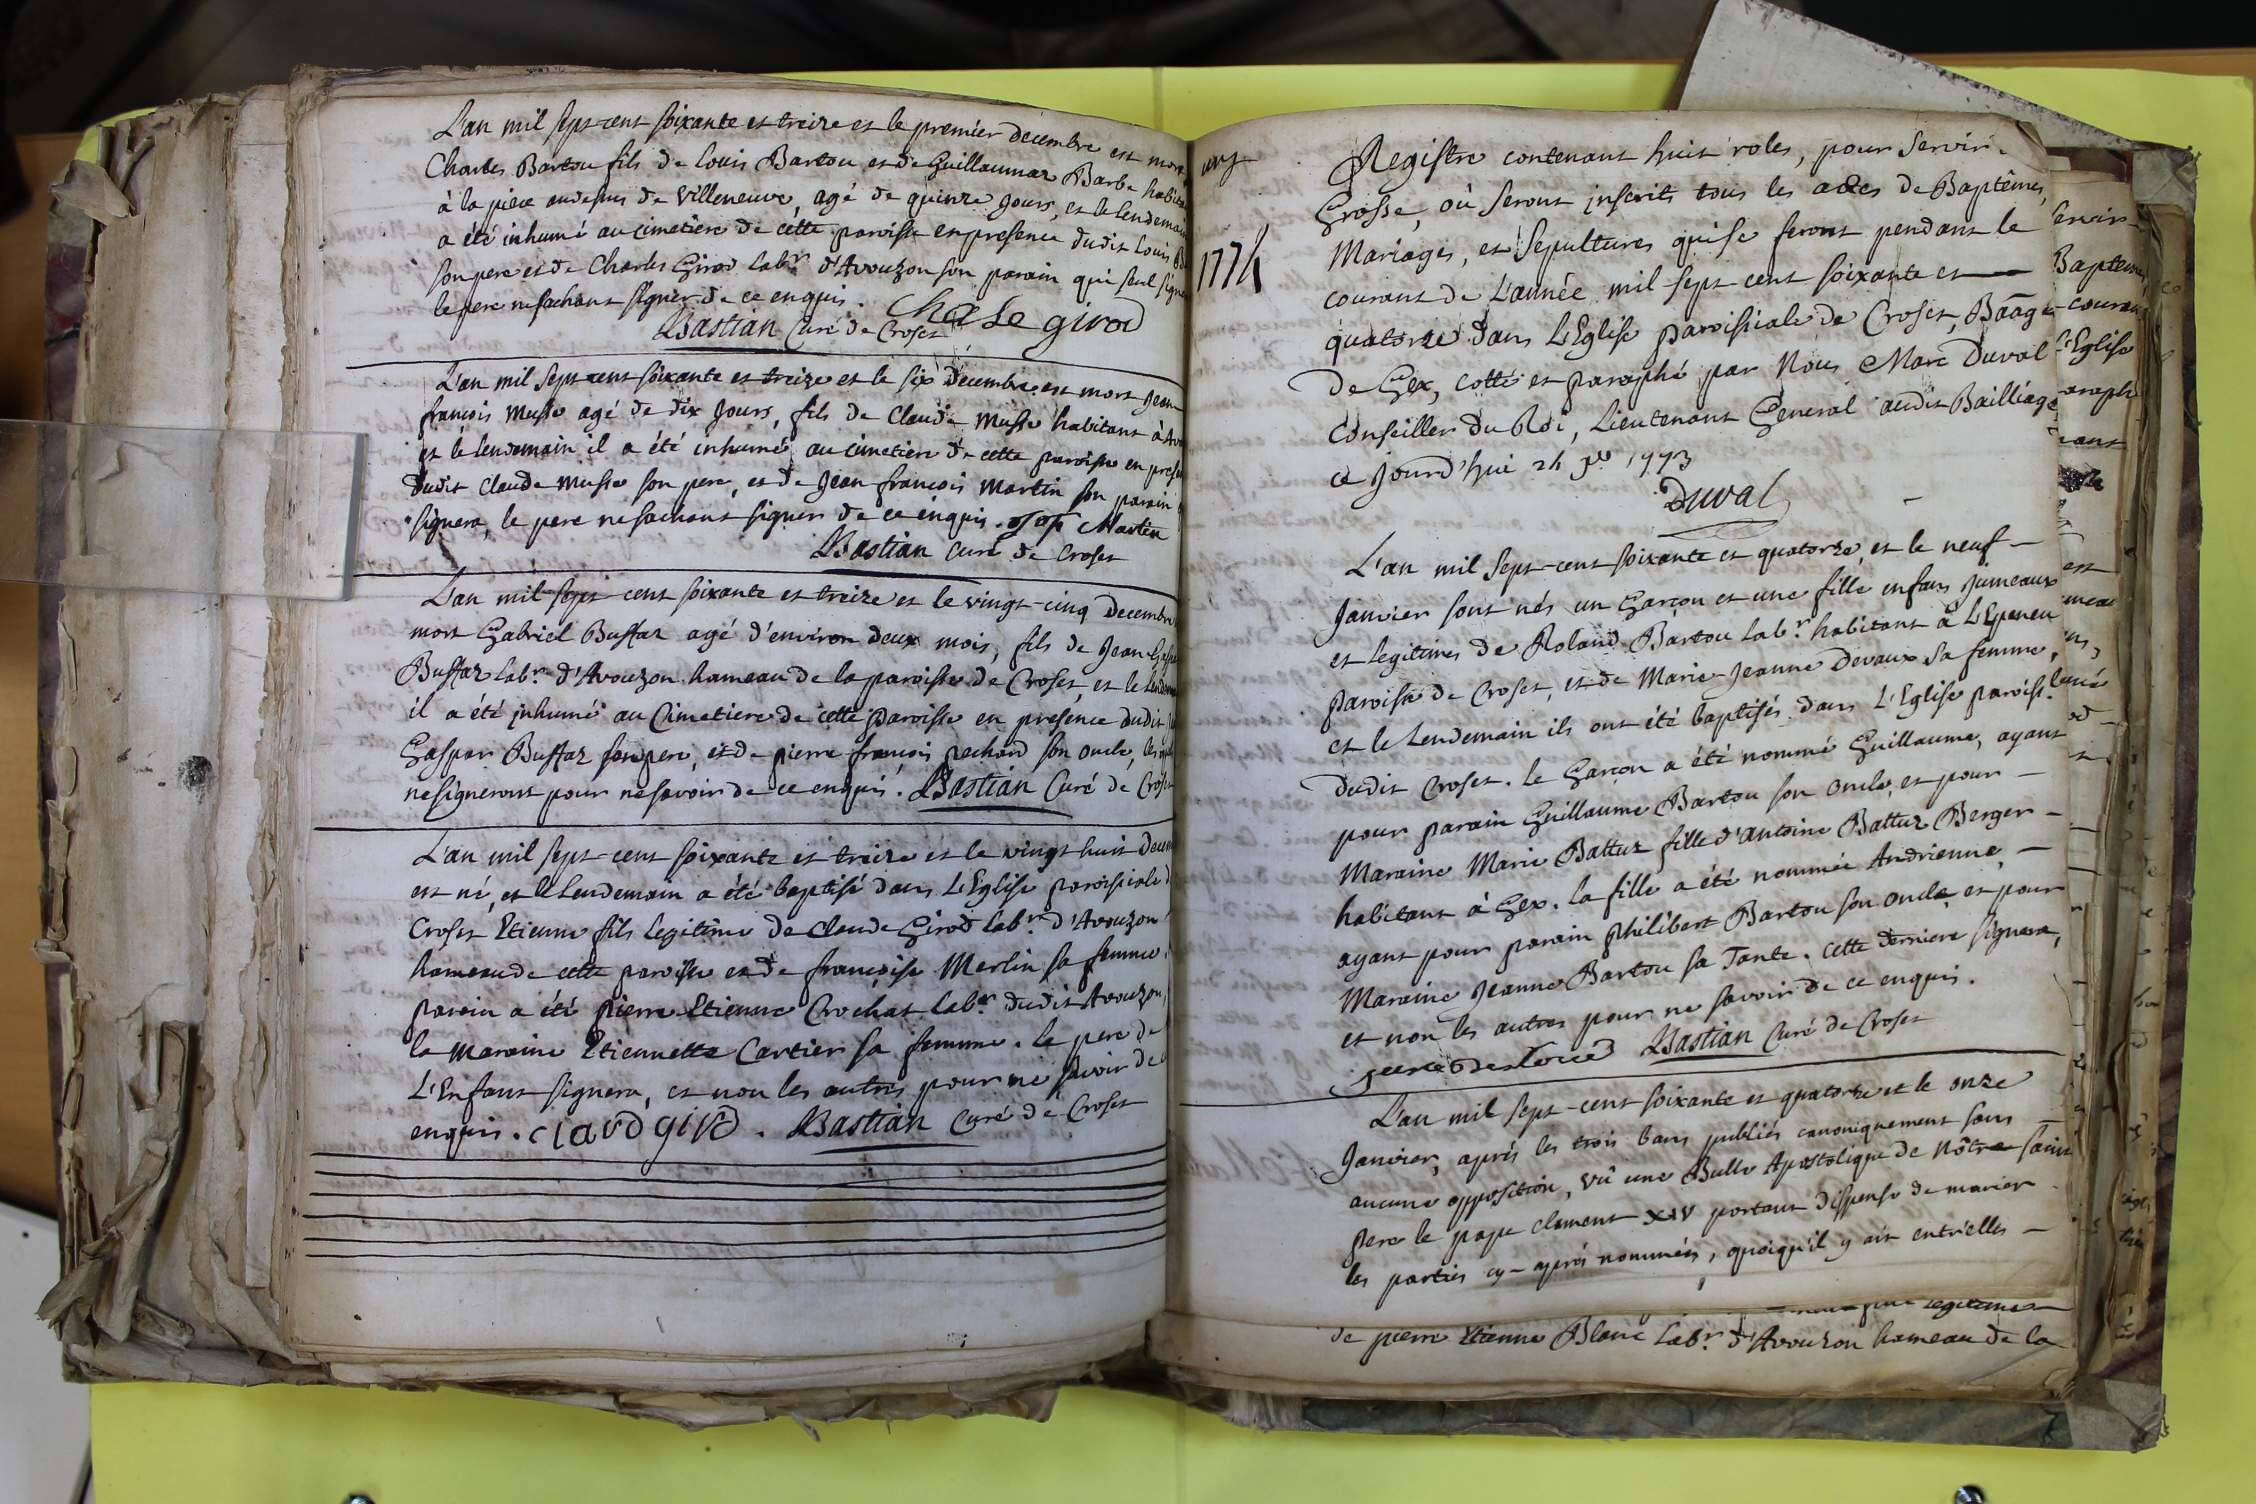 L'an mil sept-cent soixante et treize et le premier decembre est mort
Charles Bartou fils de Louis Bartou et de Guillaumaz Barbe
à la piece audessus de Villeneuve, agé de quinze jours, et le lendemain
a été inhumé au cimetiere de cette paroisse en presence dudit Louis
son pere et de Charles Girod labr. d'Avouzon son parain qui seul signe
le pere ne sachant signer de ce enquis. Charle girod
Bastian Curé de Croset
L'an mil sept-cent soixante et treize et le six decembre est mort Jean
françois Musse agé de dix jours, fils de Claude Musse habitant à
et le lendemain il a été inhumé au cimetiere de cette paroisse en
dudit Claude Musse son pere, et de Jean françois Martin son parain
signera, le pere ne sachant signer de ce enquis. Martin
Bastian Curé de Croset
L'an mil sept-cent soixante et treize et le vingt-cinq decembre
mort Gabriel Buffaz agé d'environ deux mois, fils de Jean
Buffaz labr. d'Avouzon hameau de la paroisse de Croset, et le
il a été inhumé au Cimetiere de cette paroisse en presence dudit
Gaspar Buffaz son pere, et de pierre françois pechard son oncle,
ne signeront pour ne savoir de ce enquis. Bastian Curé de Croset
L'an mil sept-cent soixante et treize et le vingt huit
est né, et le Lendemain a été baptisé dans L'Eglise paroissiale
Croset Etienne fils legitime de Claude Girod labr. d'Avouzon
hameau de cette paroisse et de françoise Merlin sa femme.
parain a été pierre Etienne Crochat labr. dudit Avouzon,
la Maraine Etiennette Cartier sa femme. le pere de
L'Enfant signera, et non les autres pour ne savoir de
enquis. claud girod. Bastian Curé de Croset
1774
Registre contenant huit roles, pour servir
Grosse, où seront inscrits tous les actes de Baptêmes,
Mariages, et sepultures qui se feront pendant le
courant de L'année mil sept-cent soixante et
quatorze dans L'Eglise paroissiale de Croset,
de Gex, cotté et paraphé par Nous Marc Duval
Conseiller du Roi, Lieutenant General audit Bailliage
ce Jourd'hui 24 1773
Duval
L'an mil sept-cent soixante et quatorze, et le neuf
Janvier sont nés un Garçon et une fille enfans jumeaux
et legitimes de Roland Bartou labr. habitant à L'Epeneu
paroisse de Croset, et de Marie-Jeanne Devaux sa femme,
et le Lendemain ils ont été baptisés dans L'Eglise paroiss.
dudit Croset. le Garçon a été nommé Guillaume, ayant
pour parain Guillaume Bartou son oncle, et pour
Maraine Marie Battuz fille d'antoine Battuz Berger
habitant à Gex. la fille a été nommée Andrienne,
ayant pour parain philibert Bartou son oncle, et pour
Maraine Jeanne Bartou sa Tante. cette derniere signera,
et non les autres pour ne savoir de ce enquis.
Bastian Curé de Croset
L'an mil sept-cent soixante et quatorze et le onze
Janvier, aprés les trois bans publiés canoniquement sans
aucune opposition, vû une Bulle Apostolique de Nôtre saint
pere le pape clement XIV portant dispense de marier
les parties cy-aprés nommées, quoiqu'il y ait entr'elles
de pierre Etienne Blanc Labr. d'Avouzon hameau de la